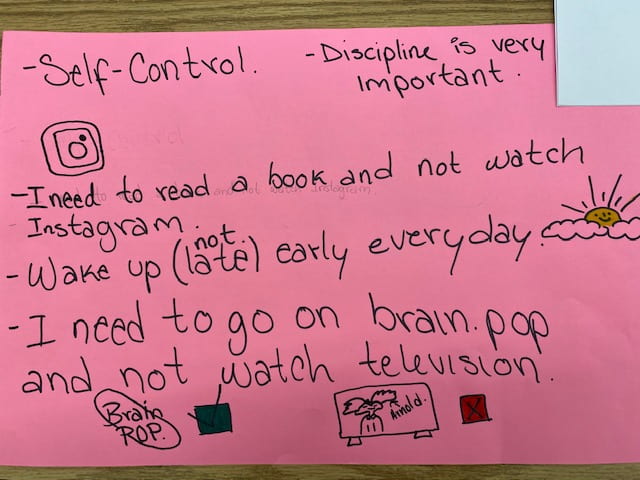 -Self-Control.
-Discipline is very
important.
-I need to read a book and not watch
Instagram.
-Wake up (not late) early everyday.
-I need to go on brain.pop
and not watch television.
Brain
POP.
Arnold.
X